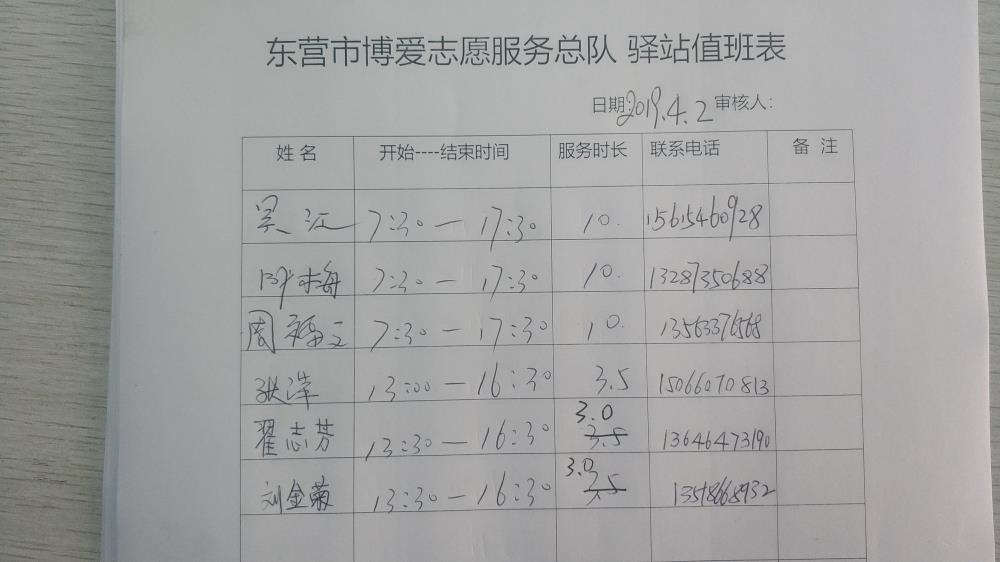 东营市博爱志愿服务总队 驿站值班表
日期:2019.4.2 审核人:
姓名 开始----结束时间 服务时长 联系电话 备 注
吴江 7:30—17:30 10. 15615460928
叶梅 7:30—17:30 10. 13287350688
周福三 7:30—17:30 10. 13563376568
狄萍 13:00—16:30 3.5 15066070813
翟志芳 13:30—16:30 3.0 3.5 13646473190
刘金菊 13:30—16:30 3.0 3.5 13518668932